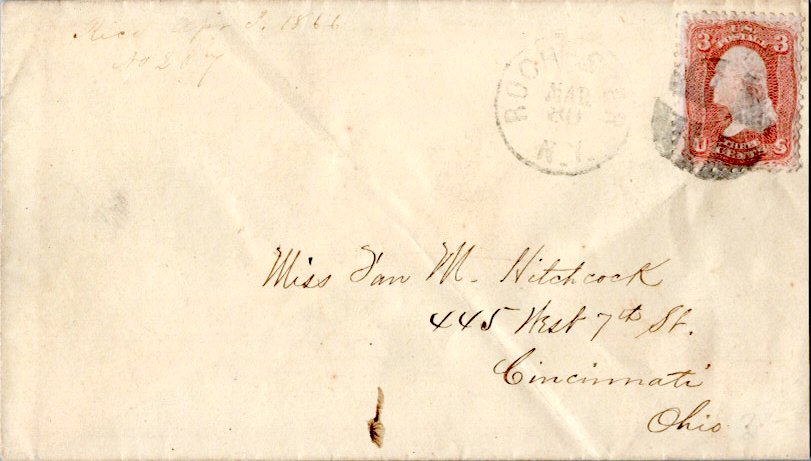 Rec'd Apr 3, 1866
No 207
ROCHESTER
MAR
30
N.Y.
U.S.
POSTAGE
3 3
U S
THREE
CENTS
Miss Fan M. Hitchcock
445 West 7th St.
Cincinnati
Ohio